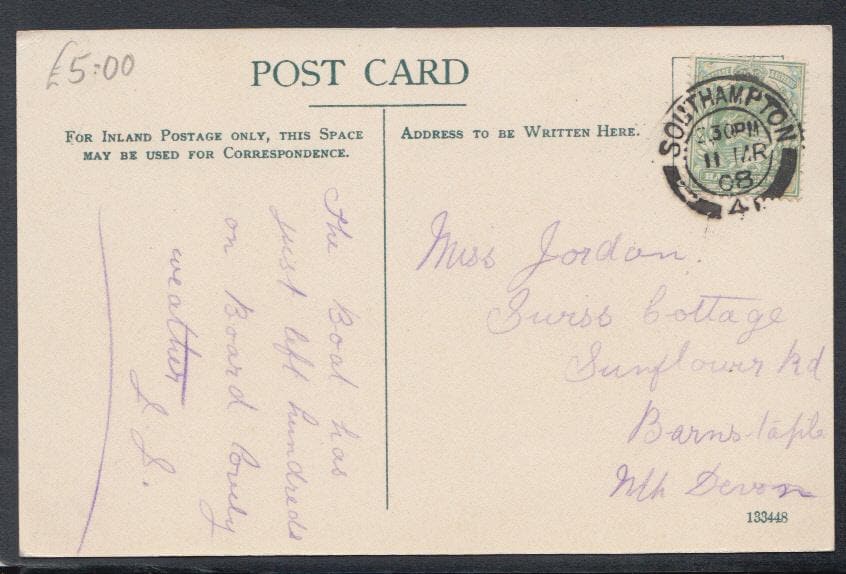 £5.00
POST CARD
FOR INLAND POSTAGE ONLY, THIS SPACE
MAY BE USED FOR CORRESPONDENCE.
ADDRESS TO BE WRITTEN HERE.
SOUTHAMPTON
30PM
11 MR
08
The Boat has
just left hundreds
on Board lovely
weather
Miss Jordan.
Swiss Cottage
Sunflower Rd
Barnstaple
Nth Devon
133448